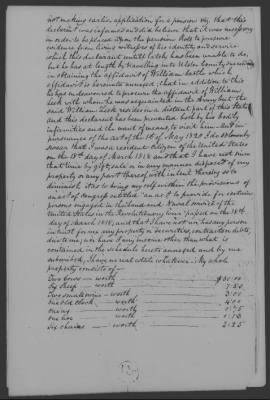 not making earlier application for a pension viz, that this
declarant was informed and did believe that it was necessary
in order to be placed upon the pension Roll to procure
evidence from living witnesses of his identity and service
which this declarant until lately has been unable to do,
but he has at length by travelling into Ulster County succeeded
in obtaining the affidavit of William which
affidavit is hereunto annexed; that in addition to this
he has endeavored to procure the affidavit of William
with whom he was acquainted in the Army but the
said William resides in a distant part of this State
and this declarant has been prevented both by his bodily
infirmities and the want of means, to visit him - and in
pursuance of the act of the 1st of May 1820 I do solemnly
swear that I was a resident citizen of the United States
on the 18th day of March 1818 and that I have not since
that time by gift, sale or in any manner disposed of my
property or any part thereof with intent thereby so to
diminish it as to bring myself within the provisions of
an act of Congress entitled "an act to provide for certain
persons engaged in the land and Naval service of the
United States in the Revolutionary War" passed on the 18th
day of March 1818, and that I have not nor has any person
in trust for me any property or securities, contracts or debts,
due to me; nor have I any income other than what is
contained in the schedule hereto annexed and by me
subscribed, I have no real estate whatever - My whole
property consists of -
Two cows - worth $30.00
Six Sheep - worth 7.50
Two small swine - worth 3.00
One old Clock - worth 4.00
worth
One hoe worth
Six chairs - worth 2.25